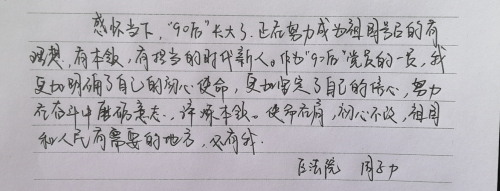 感怀当下，“90后”长大了，正在努力成为祖国号召的有
理想，有本领，有担当的时代新人。作为“90后”党员的一员，我
更加明确了自己的初心使命，更加坚定了自己的信心，努力
在奋斗中磨砺意志，锤炼本领。使命在肩，初心不改，祖国
和人民有需要的地方，必有我.
区法院 周子力